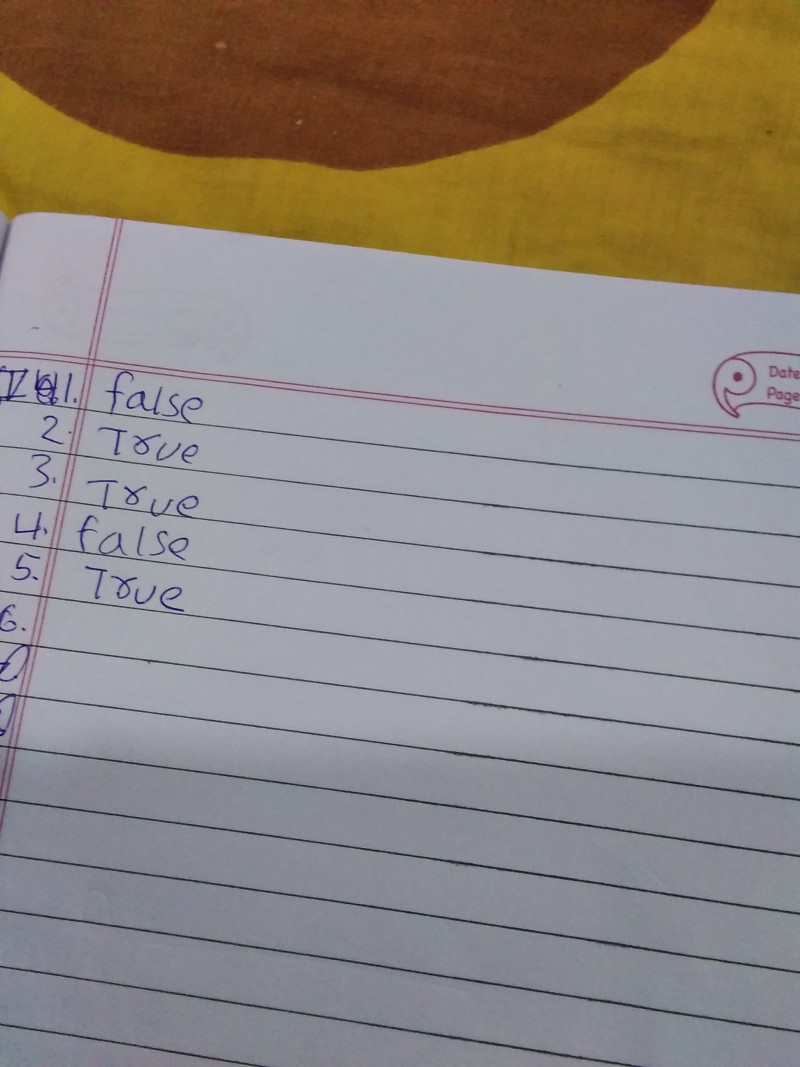 1. false
2. True
3. True
4. false
5. True
6.
Date
Page